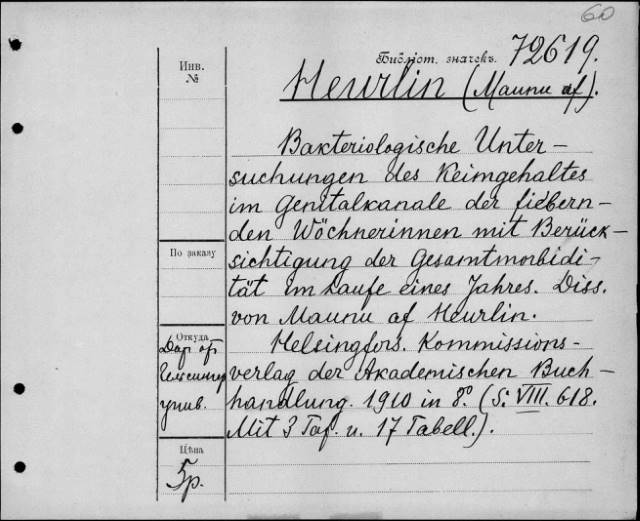 60
Библіот. значекъ. 72619.
Инв.
№
Heurlin (Maunu af).
Bakteriologische Unter-
suchungen des Keimgehaltes
im Genitalkanale der fiebern-
den Wöchnerinnen mit Berück-
sichtigung der Gesamtmorbidi-
tät im Laufe eines Jahres. Diss.
von Maunu af Heurlin.
Helsingfors. Kommissions-
verlag der Akademischen Buch-
handlung. 1910 in 8º. (S. VIII. 618.
Mit 3 Taf. u. 17 Tabell.).
По заказу
Откуда
Дар от
унив.
Цѣна
5р.